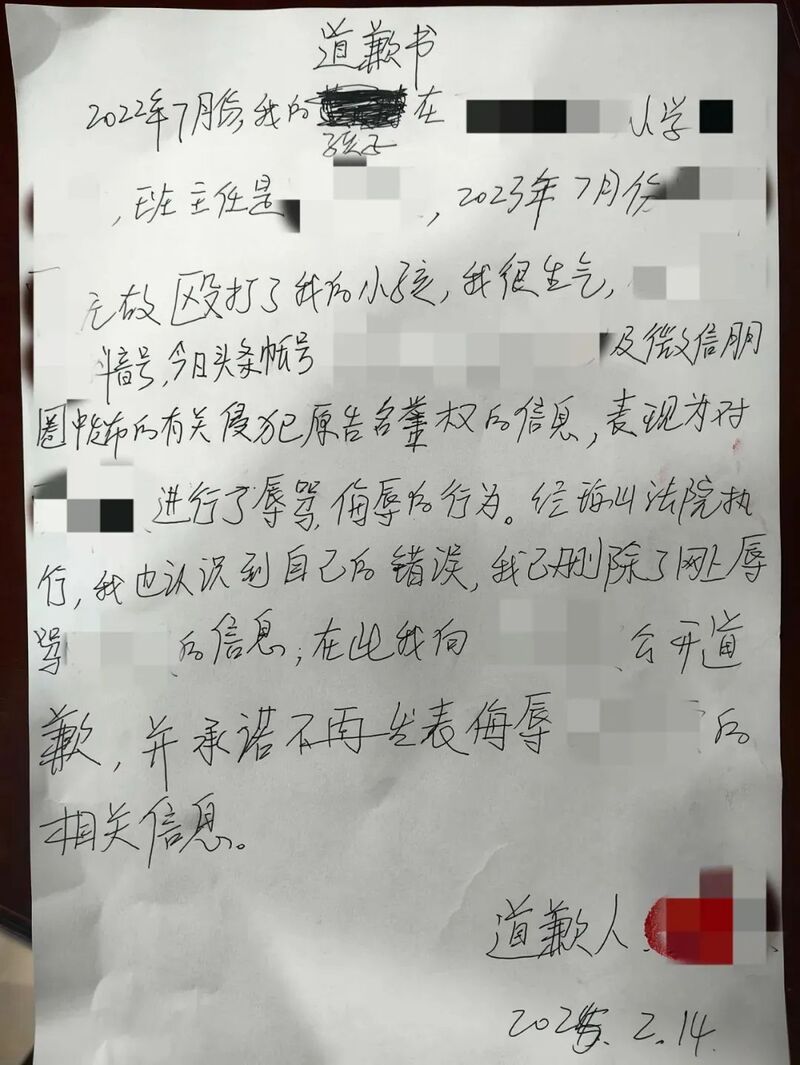 道歉书
2022年7月份,我的 在 小学
孩子
,班主任是 ,2023年7月份
无故殴打了我的小孩,我很生气,
抖音号,今日头条帐号 及微信朋
圈中发布的有关侵犯原告名誉权的信息,表现为对
进行了辱骂,侮辱的行为。经 山法院执
行,我也认识到自己的错误,我已删除了网上辱
骂 的信息,在此我向 公开道
歉,并承诺不再发表侮辱 的
相关信息。
道歉人
2025.2.14.